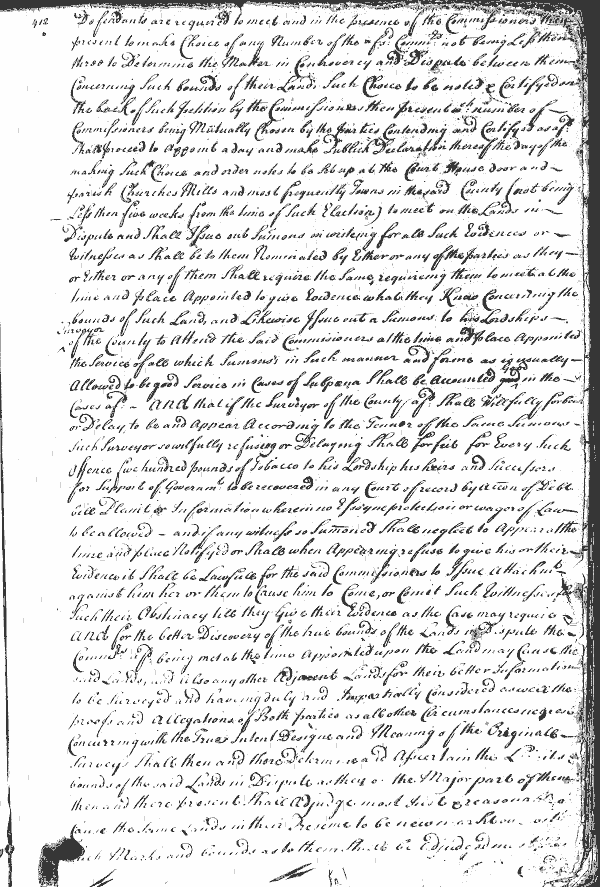 412
Defendants are required to meet and in the presence of the Commissioners then
present to make Choice of any Number of the afsd. Commrs. not being Less then
three to Determine the Matter in Controversy and Dispute between them
Concerning Such bounds of their Land Such Choice to be noted & Certifyed on
the back of Such Petition by the Commissioners then present wch. number of
Commissioners being Mutually Chosen by the parties Contending and Certifyed as afsd.
Shall proceed to Appoint a day and make Publick Declaration thereof the day of the
making Such Choice and order notes to be Set up at the Court House door and
parish Churches Mills and most frequently Towns in the said County (not being
Less then five weeks from the time of Such Election) to meet on the Lands in
Dispute and Shall Issue out Sumons in writeing for all Such Evidences or
Witnesses as Shall be to them Nominated by Either or any of the parties as they
or Either or any of them Shall require the Same, requireing them to meet at the
time and place Appointed to give Evidence what they Know Concerning the
bounds of Such Land, and Likewise Issue out a Sumons to his Lordships
Surveyor
of the County to Attend the Said Commissioners at the time and place Appointed
the Service of all which Sumons's in Such manner and forme as is usually
Allowed to be good Service in Cases of Subpena Shall be Accounted good in the
Cases afsd. - And that if the Surveyor of the County afsd. Shall Willfully forbear
or Delay to be and Appear According to the Tennor of the Same Sumons
Such Surveyor so wilfully refusing or Delaying Shall forfeit for Every Such
Offence five hundred pounds of Tobacco to his Lordship his heirs and Successors
for Support of Governmt. to be recovered in any Court of record by Action of Debt
bill Plaint or Information wherein no Essoyne protection or wager of Law
to be allowed - and if any witness so Sumoned Shall neglect to Appear at the
time and place Notifyed or Shall when Appearing refuse to give his or their
Evidence it Shall be Lawfull for the said Commissioners to Issue Attachmt.
against him her or them to Cause him to Come, or Comit Such Wittnesses for
Such their Obstinacy till they Give their Evidence as the Case may require
And for the better Discovery of the true bounds of the Lands in Dispute the
Commrs. afsd. being met at the time Appointed upon the Land may Cause the
said Lands, and also any other Adjacent Lands for their better Information
to be Surveyed and having duly and Impartially Considered as well the
proofs and Allegations of Both parties as all other Circumstances
Concurring with the True Intent Designe and Meaning of the Originall
Survey Shall then and there Determine and Ascertain the
bounds of the said Lands in Dispute as they or the Major part of them
then and there present Shall Adjudge most Just & reasonable
Cause the Same Lands in their Presence to be new marked
Such Marks and bounds as to them Shall be Adjudged